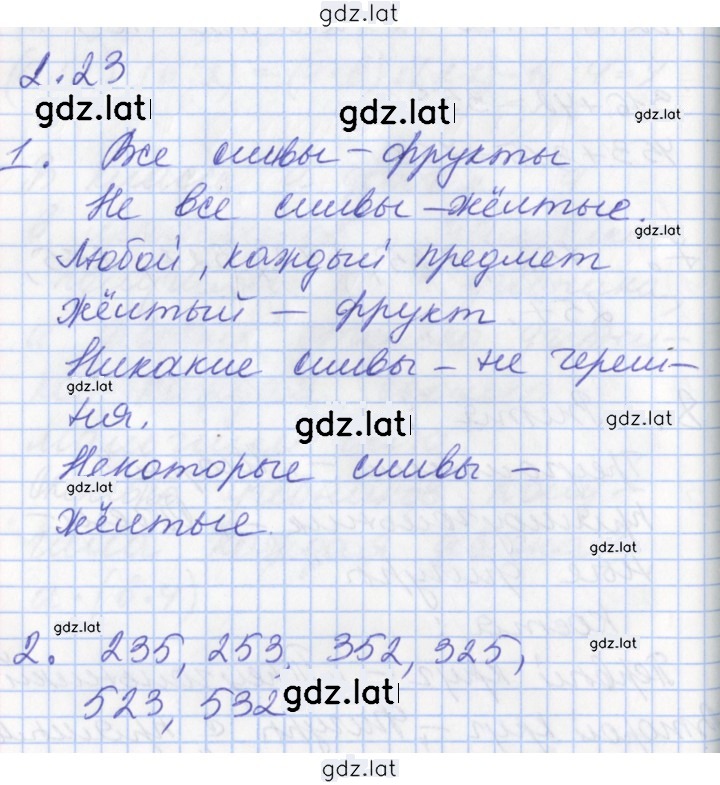 gdz.lat
2.23
gdz.lat gdz.lat gdz.lat
1. Все сливы – фрукты
Не все сливы – жёлтые.
gdz.lat
Любой, каждый предмет
жёлтый – фрукт.
Никакие сливы – не череш-
gdz.lat
ня.
gdz.lat gdz.lat
Некоторые сливы –
gdz.lat
жёлтые.
gdz.lat
gdz.lat gdz.lat
2. 235, 253, 352, 325,
523, 532
gdz.lat
gdz.lat